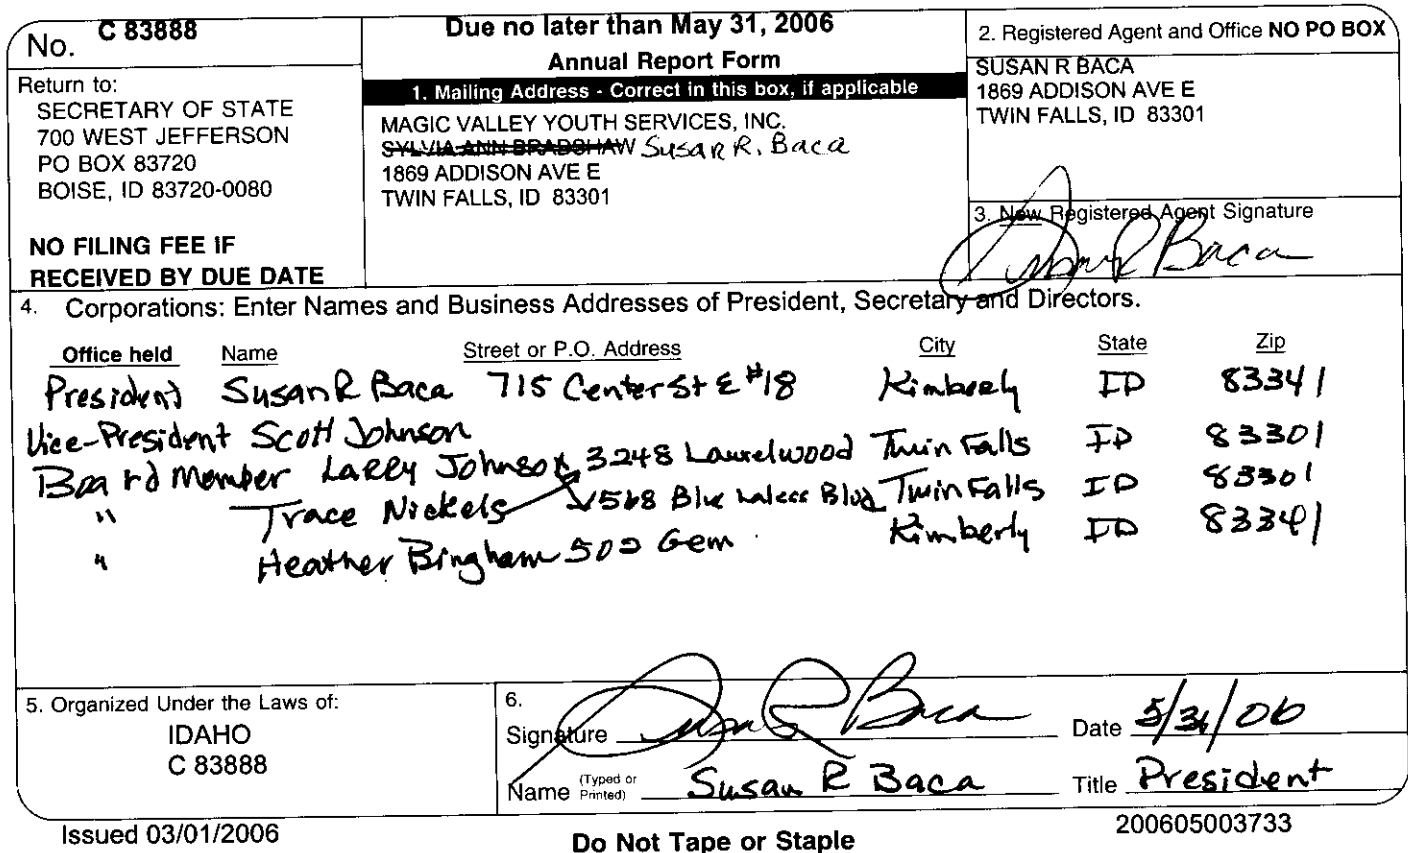 No. C 83888
Return to:
SECRETARY OF STATE
700 WEST JEFFERSON
PO BOX 83720
BOISE, ID 83720-0080
NO FILING FEE IF
RECEIVED BY DUE DATE
Due no later than May 31, 2006
Annual Report Form
1. Mailing Address - Correct in this box, if applicable
MAGIC VALLEY YOUTH SERVICES, INC.
SYLVIA ANN BRADSHAW Susan R. Baca
1869 ADDISON AVE E
TWIN FALLS, ID 83301
2. Registered Agent and Office NO PO BOX
SUSAN R BACA
1869 ADDISON AVE E
TWIN FALLS, ID 83301
3. New Registered Agent Signature
Susan R Baca
4. Corporations: Enter Names and Business Addresses of President, Secretary and Directors.
Office held Name Street or P.O. Address City State Zip
President Susan R Baca 715 Center St E #18 Kimberly ID 83341
Vice-President Scott Johnson
Board Member Larry Johnson 3248 Laurelwood Twin Falls ID 83301
" Trace Nickels Blue Blvd Twin Falls ID 83301
" Heather Bingham 502 Gem Kimberly ID 83341
5. Organized Under the Laws of:
IDAHO
C 83888
6.
Signature Susan R Baca Date 5/31/06
Name (Typed or Printed) Susan R Baca Title President
Issued 03/01/2006
Do Not Tape or Staple
200605003733